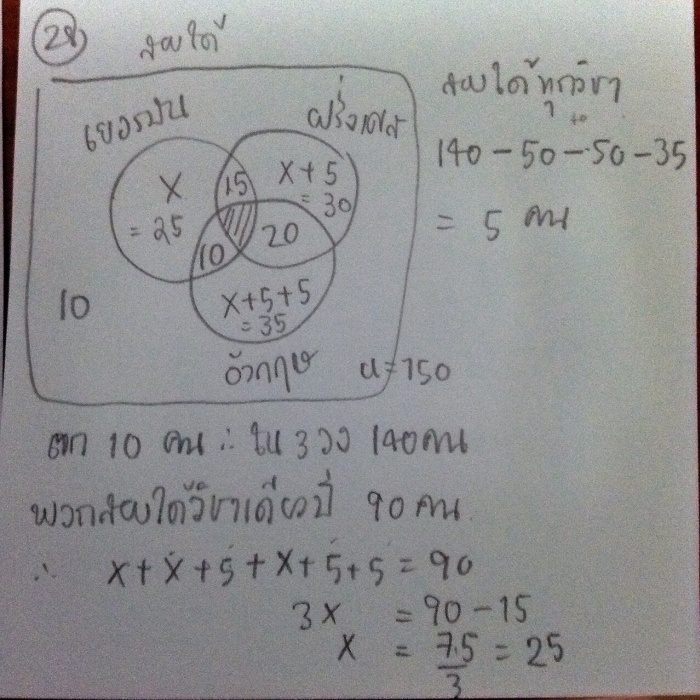 28 สอบได้
เยอรมัน
ฝรั่งเศส
สอบได้ทุกวิชา
140 - 50 - 50 - 35
= 5 คน
X
= 25
15
X + 5
= 30
10
20
X+5+5
= 35
10
อังกฤษ
u = 150
ตก 10 คน ∴ ใน 3 วง 140 คน
พวกสอบได้วิชาเดียวมี 90 คน
∴ X + X + 5 + X + 5 + 5 = 90
3X = 90 - 15
X = 75/3 = 25